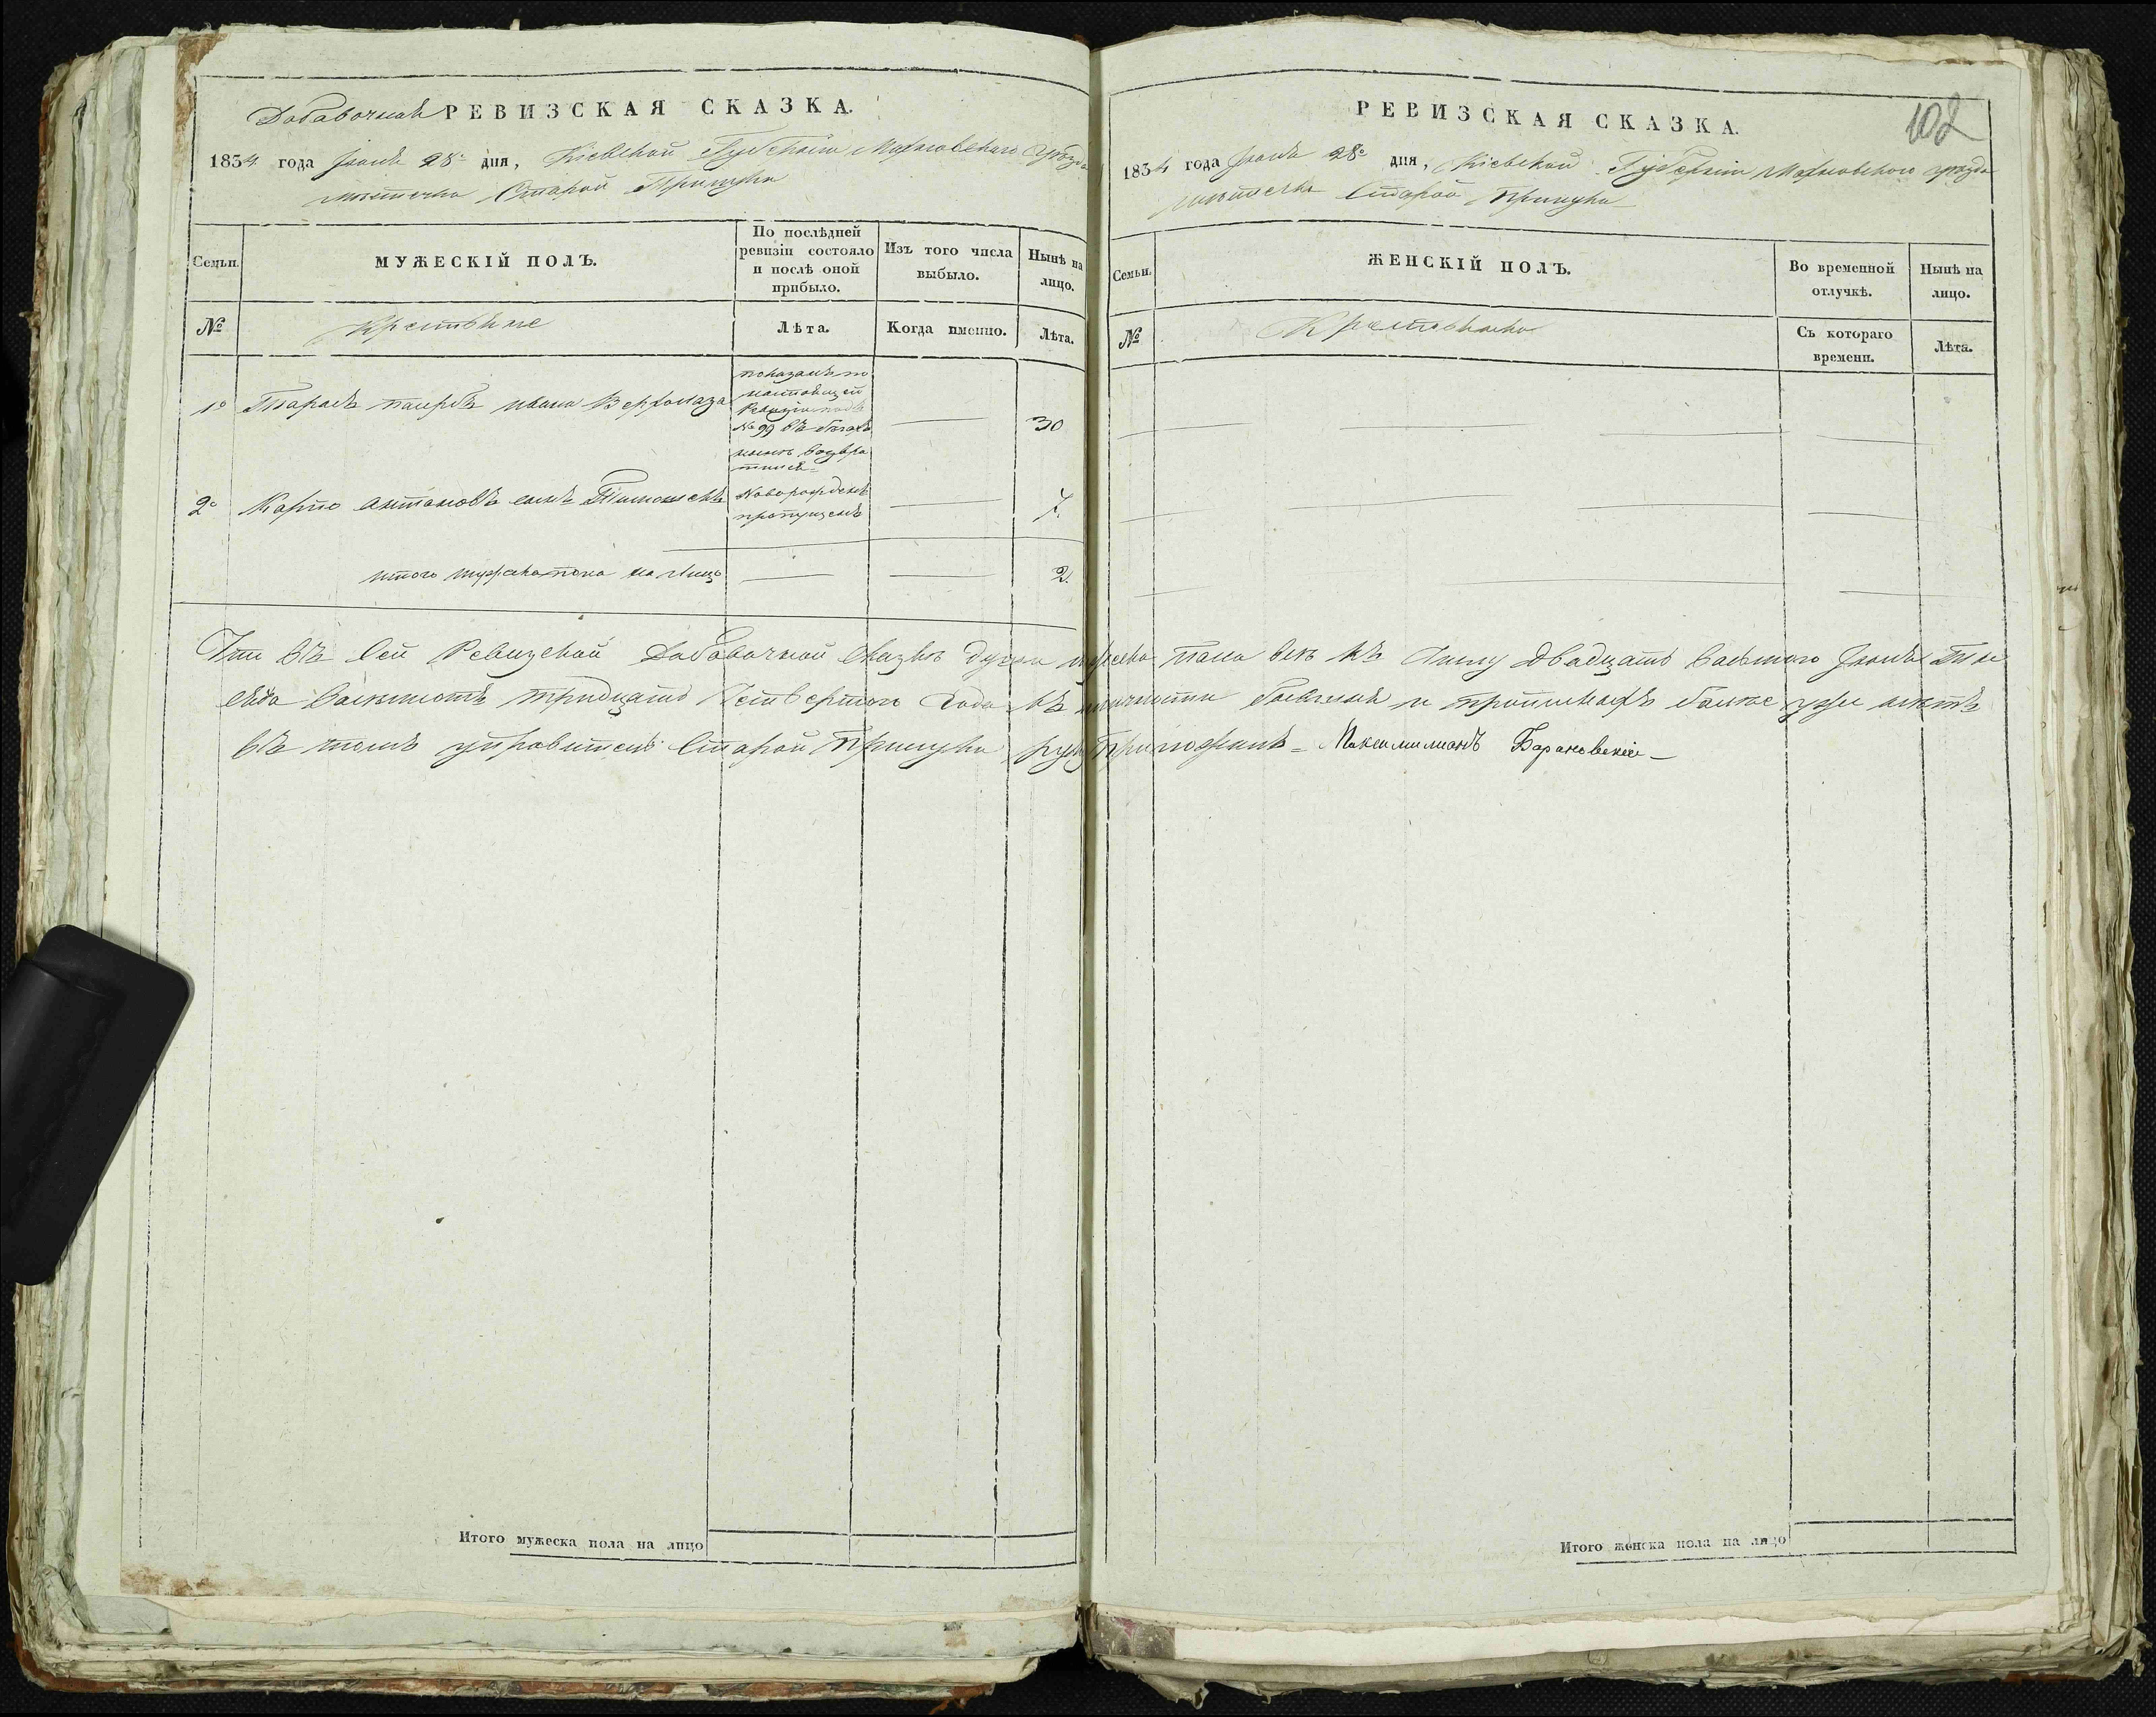 Добавочная РЕВИЗСКАЯ СКАЗКА.
1834 года Іюня 28º дня, Кіевской Губерніи Махновскаго Уѣзда
мѣстечка Старой Прилуки
Семьи.
МУЖЕСКІЙ ПОЛЪ.
По послѣдней ревизіи состояло и послѣ оной прибыло.
Изъ того числа выбыло.
Нынѣ на лицо.
№
Крестьяне
Лѣта.
Когда именно.
Лѣта.
1º Тарасъ Ивана
показанъ по
настоящей
Ревизіи подъ
№ 99 въ бѣгахъ
нынѣ возвра
тился
30
2º Карпо Антоновъ сынъ
Новорожденъ
пропущенъ
7.
итого мужеска пола на лицо
2.
Итого мужеска пола на лицо
102
РЕВИЗСКАЯ СКАЗКА.
1834 года Іюня 28º дня, Кіевской Губерніи Махновского уѣзда
мѣстечка Старой Прилуки
Семьи.
ЖЕНСКІЙ ПОЛЪ.
Во временной отлучкѣ.
Нынѣ на лицо.
№
Крестьянска
Съ котораго времени.
Лѣта.
въ сей Ревизской Добавочной сказкѣ души мужеска пола всѣ къ двадцать восьмого Іюня Ты
сяча восемьсотъ тридцать Четвертого Года въ и болѣе уже нѣтъ
въ томъ управитель Старой Прилуки руку приложилъ = Максимиліанъ Барановскій
Итого женска пола на лицо